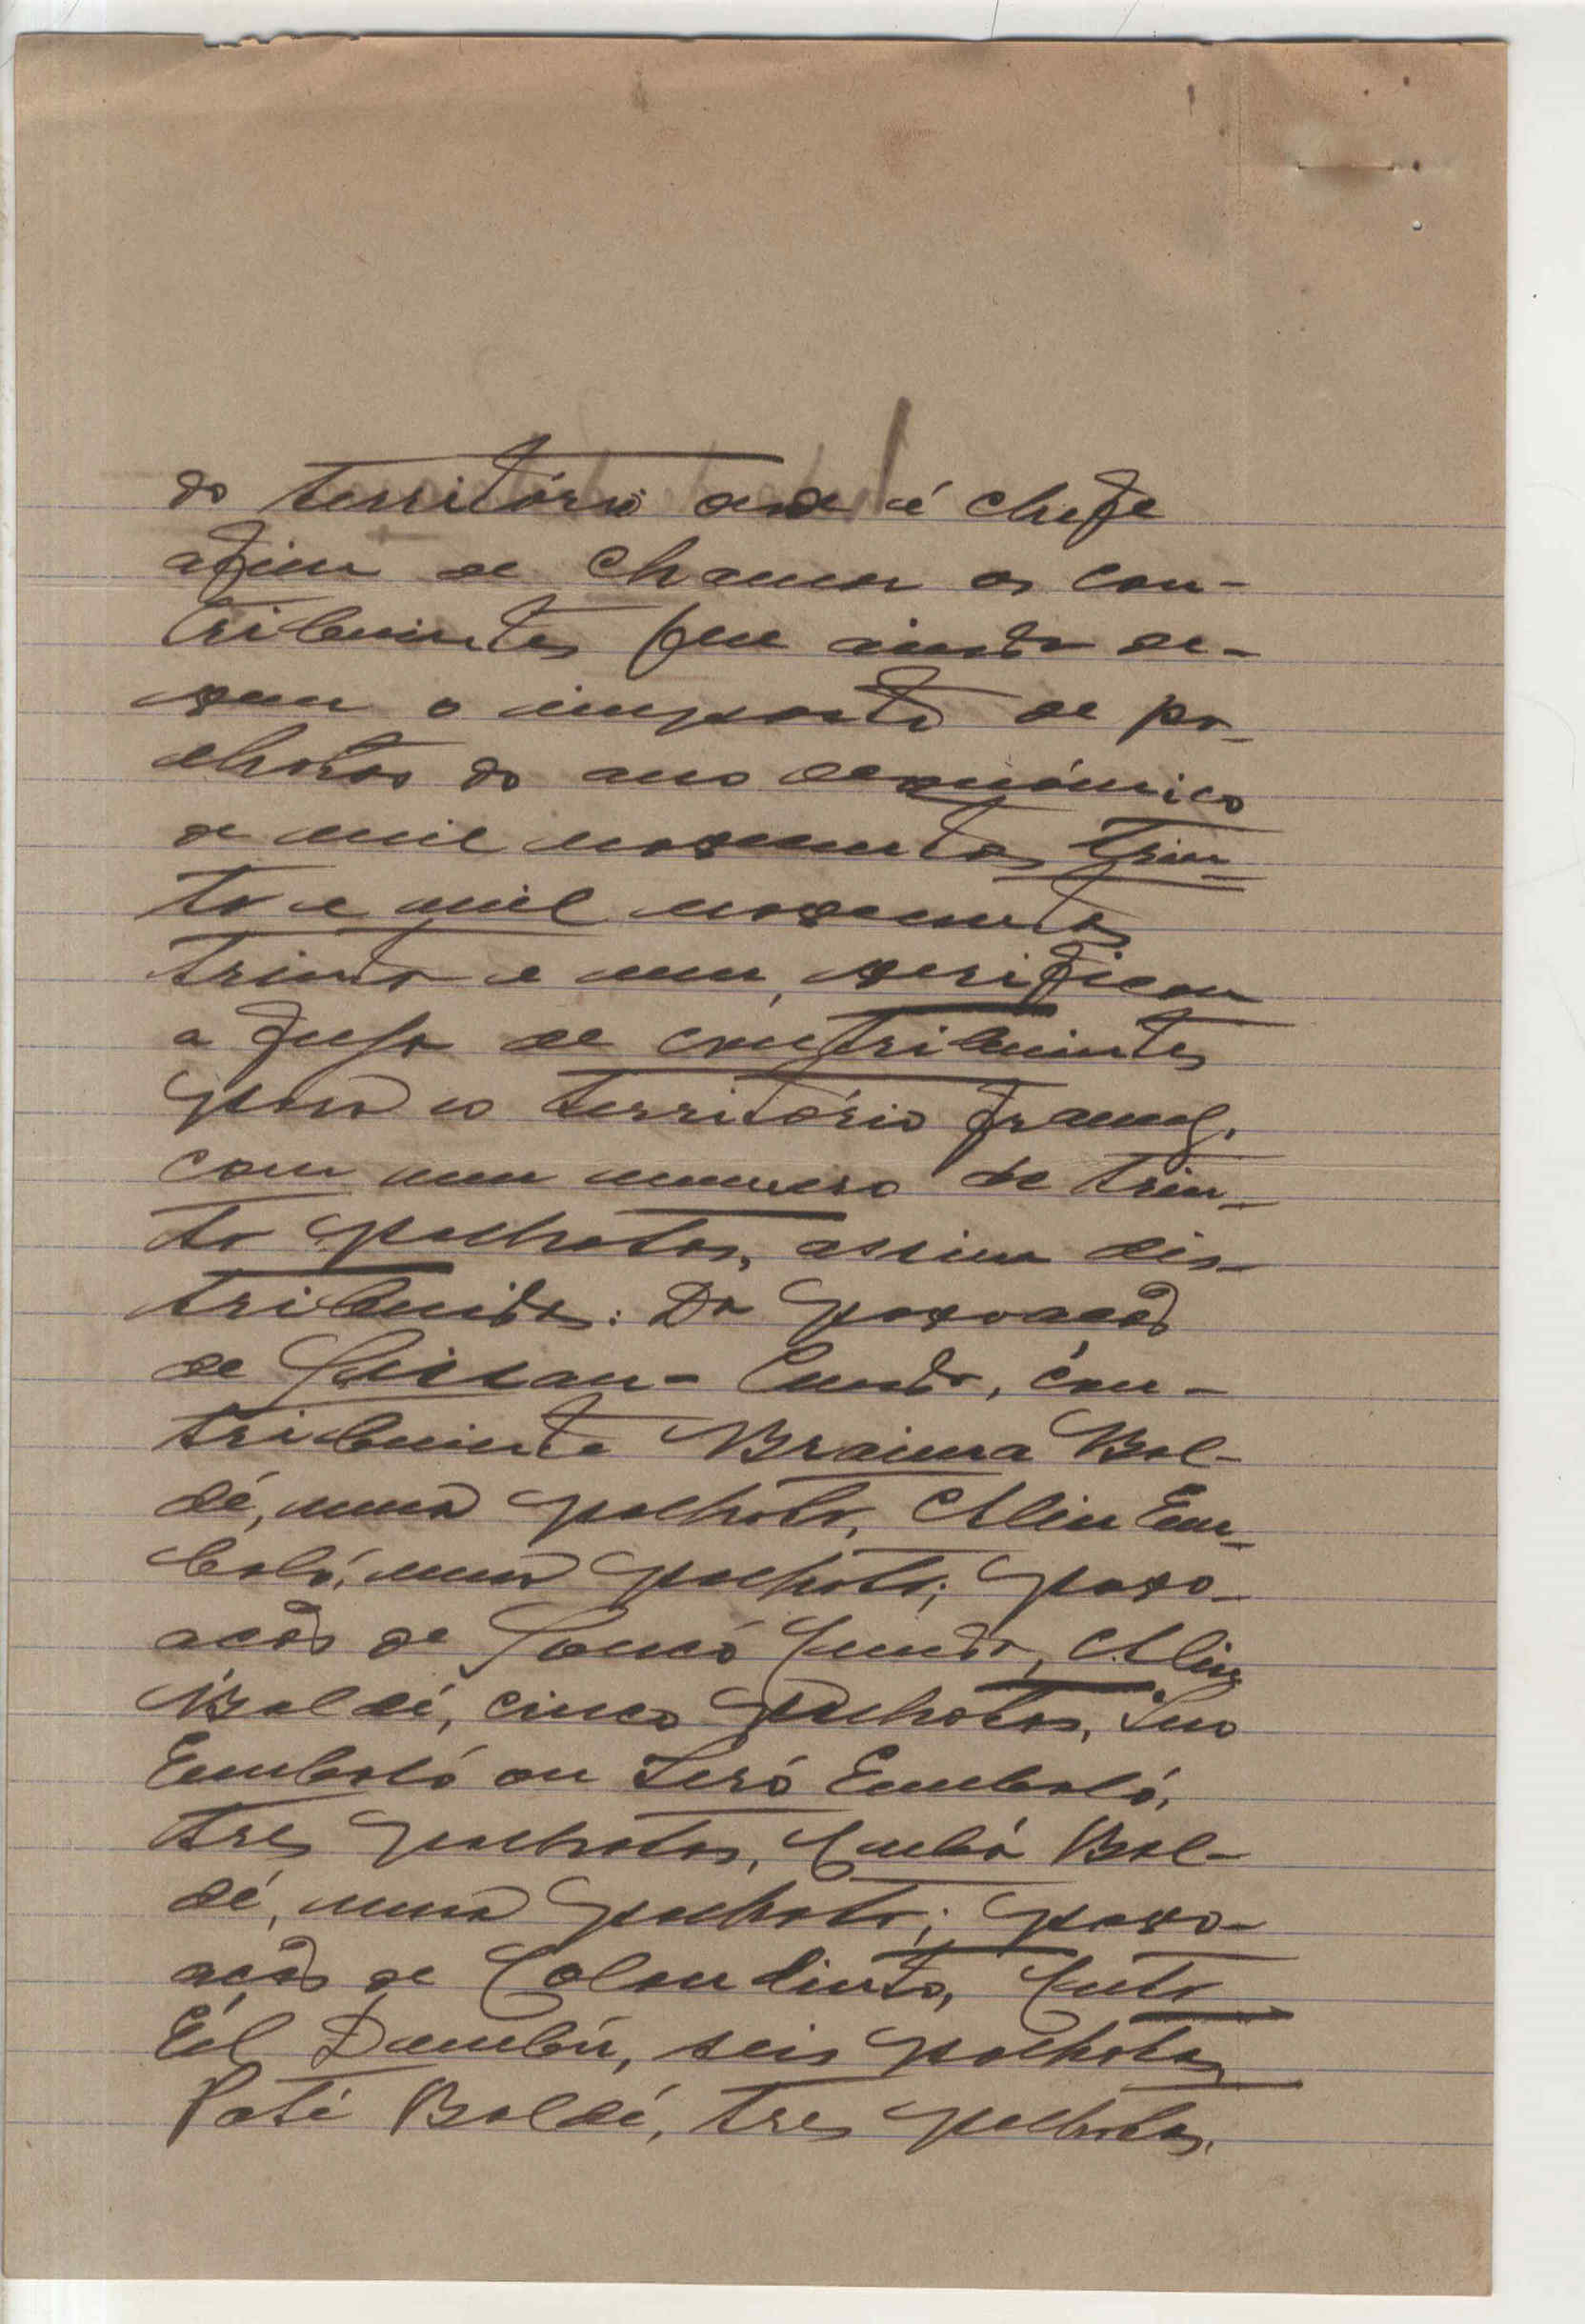 do território onde é chefe
afim de chamar os con-
tribuintes que ainda de-
vem o imposto de pa-
lhotas do ano económico
de mil novecentos trin-
ta e mil novecentos
trinta e um, verificou
a fuga de contribuintes
para o território francês,
com um numero de trin-
ta palhotas, assim dis-
tribuidas: Da povoação
de Sissan-Cunda, con-
tribuinte Braima Bal-
dé, uma palhota, Aliu Em-
baló, uma palhota; povo-
ação de Soncó Cunda, Aliu
Baldé, cinco palhotas,
Embaló ou Seró Embaló,
tres palhotas, Cumbá Bal-
dé, uma palhota; povo-
ação de
Dembú, seis palhotas,
Paté Baldé, tres palhotas,